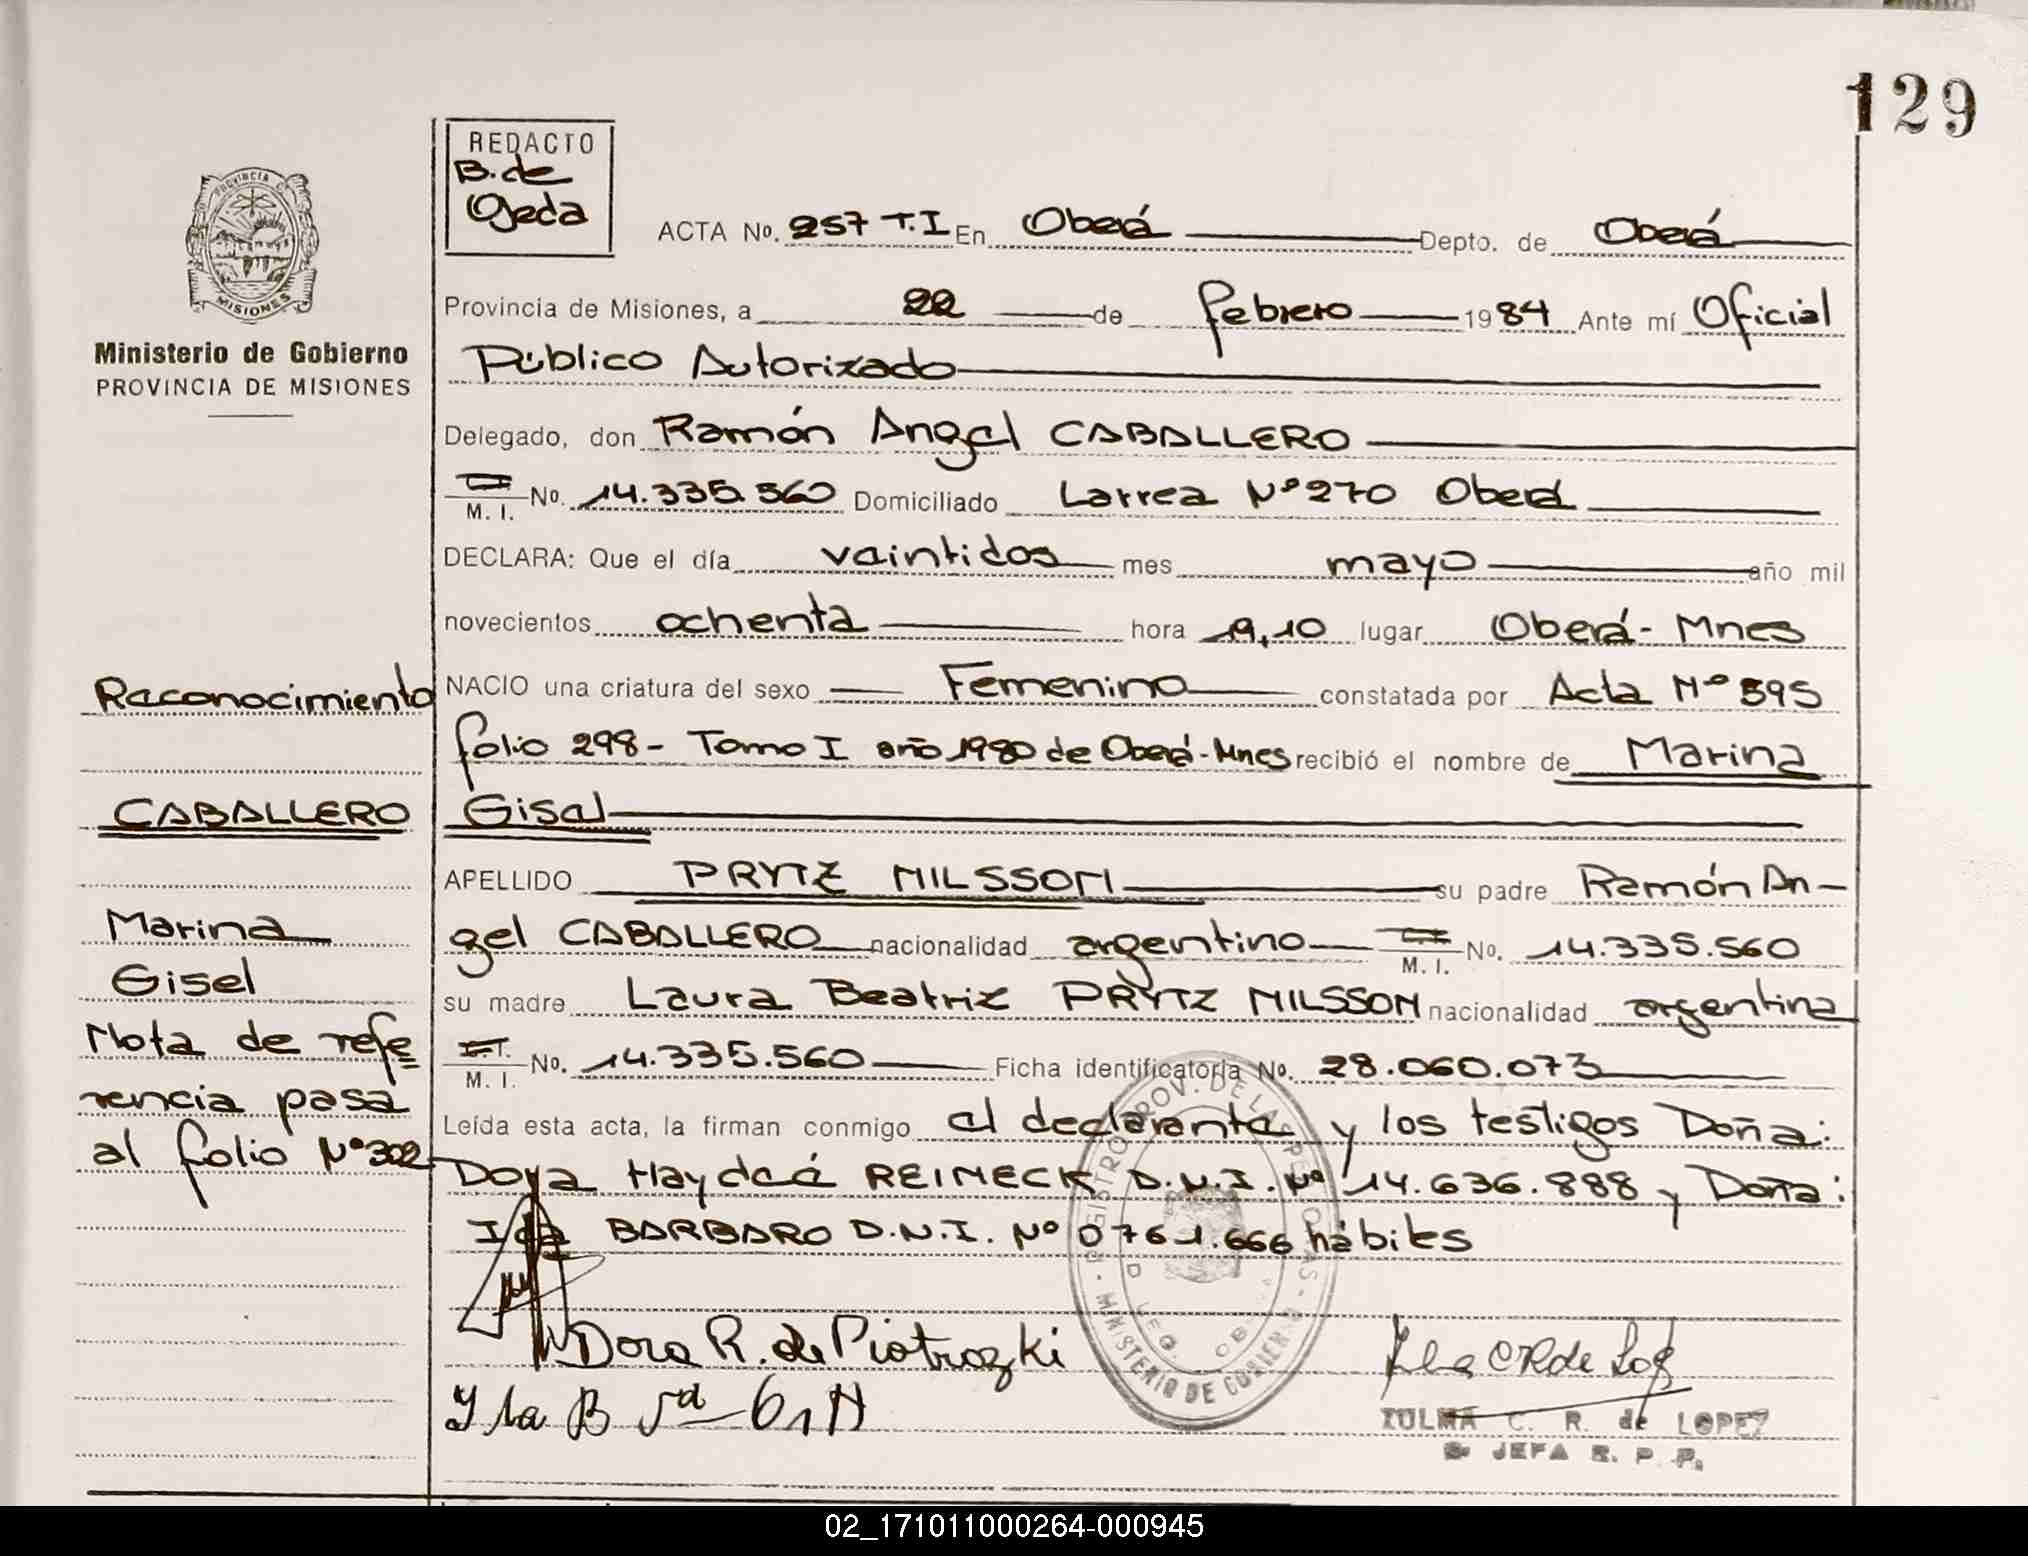 129
REDACTO
B. de
Ojeda
PROVINCIA DE
MISIONES
Ministerio de Gobierno
PROVINCIA DE MISIONES
ACTA No. 257 T.I En Oberá Depto. de Oberá
Provincia de Misiones, a 22 de febrero 1984 Ante mí Oficial
Público Autorizado
Delegado, don Ramón Angel CABALLERO
M. I. No. 14.335.560 Domiciliado Larrea Nº 270 Oberá
DECLARA: Que el día veintidos mes mayo año mil
novecientos ochenta hora 19,10 lugar Oberá - Mnes
NACIO una criatura del sexo Femenino constatada por Acta Nº 595
folio 298 - Tomo I año 1980 de Oberá - Mnes recibió el nombre de Marina
Gisel
APELLIDO PRYTZ NILSSON su padre Ramón An-
gel CABALLERO nacionalidad argentino M. I. No. 14.335.560
su madre Laura Beatriz PRYTZ NILSSON nacionalidad argentina
M. I. No. 14.335.560 Ficha identificatoria No. 28.060.073
Leída esta acta, la firman conmigo el declarante y los testigos Doña:
Dora Haydeé REINECK D.N.I. Nº 14.636.888 y Doña:
Ida BARBARO D.N.I. Nº 0761.666 hábiles
Reconocimiento
CABALLERO
Marina
Gisel
Nota de refe-
rencia pasa
al folio Nº 302
Dora R. de Piotrozki
REGISTRO PROV. DE LAS PERSONAS
MINISTERIO DE GOBIERNO
ZULMA C. R. de LOPEZ
JEFA R. P. P.
02_171011000264-000945